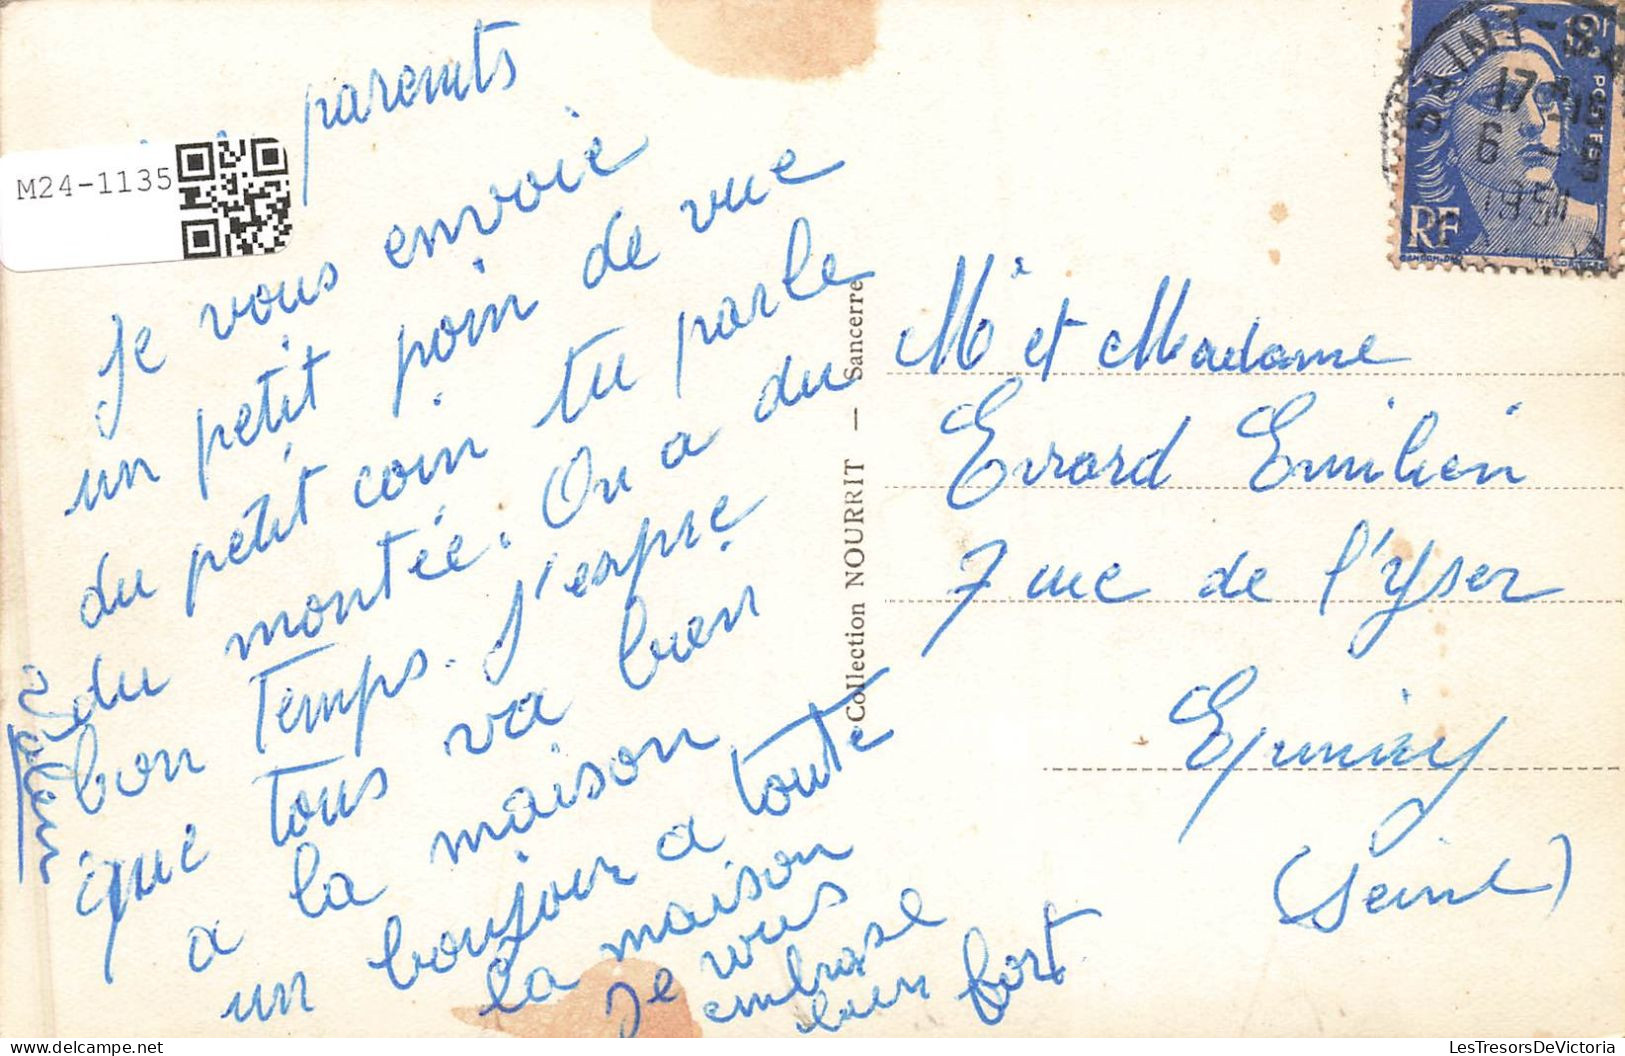 M24-1135
parents
Je vous envoie
un petit poin de vue
du petit coin tu parle
du montée. On a du
bon temps. J'espre
que tous va bien
a la maison
un bonjour a toute
la maison
Je vous
embrase
bien fort
Collection NOURRIT — Sancerre
POSTES
17 -15
6 -
1951
RF
Mr et Madame
Evrard Emilien
7 rue de l'Yser
Epinay
(Seine)
LesTresorsDeVictoria